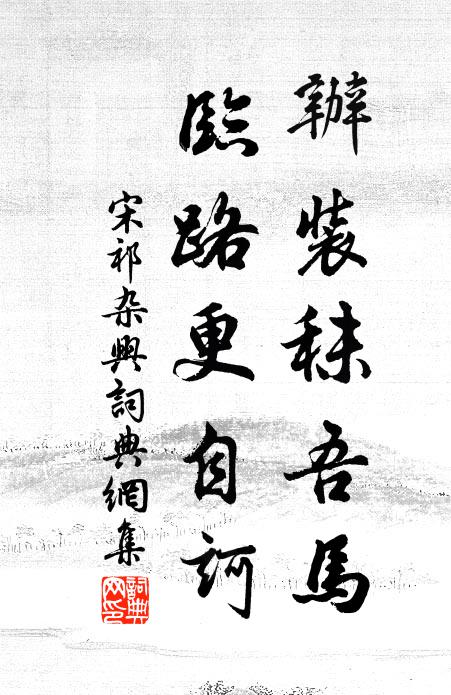 辦裝秣吾馬
臨路更自訶
宋祁杂興詞典網集
詞典网印